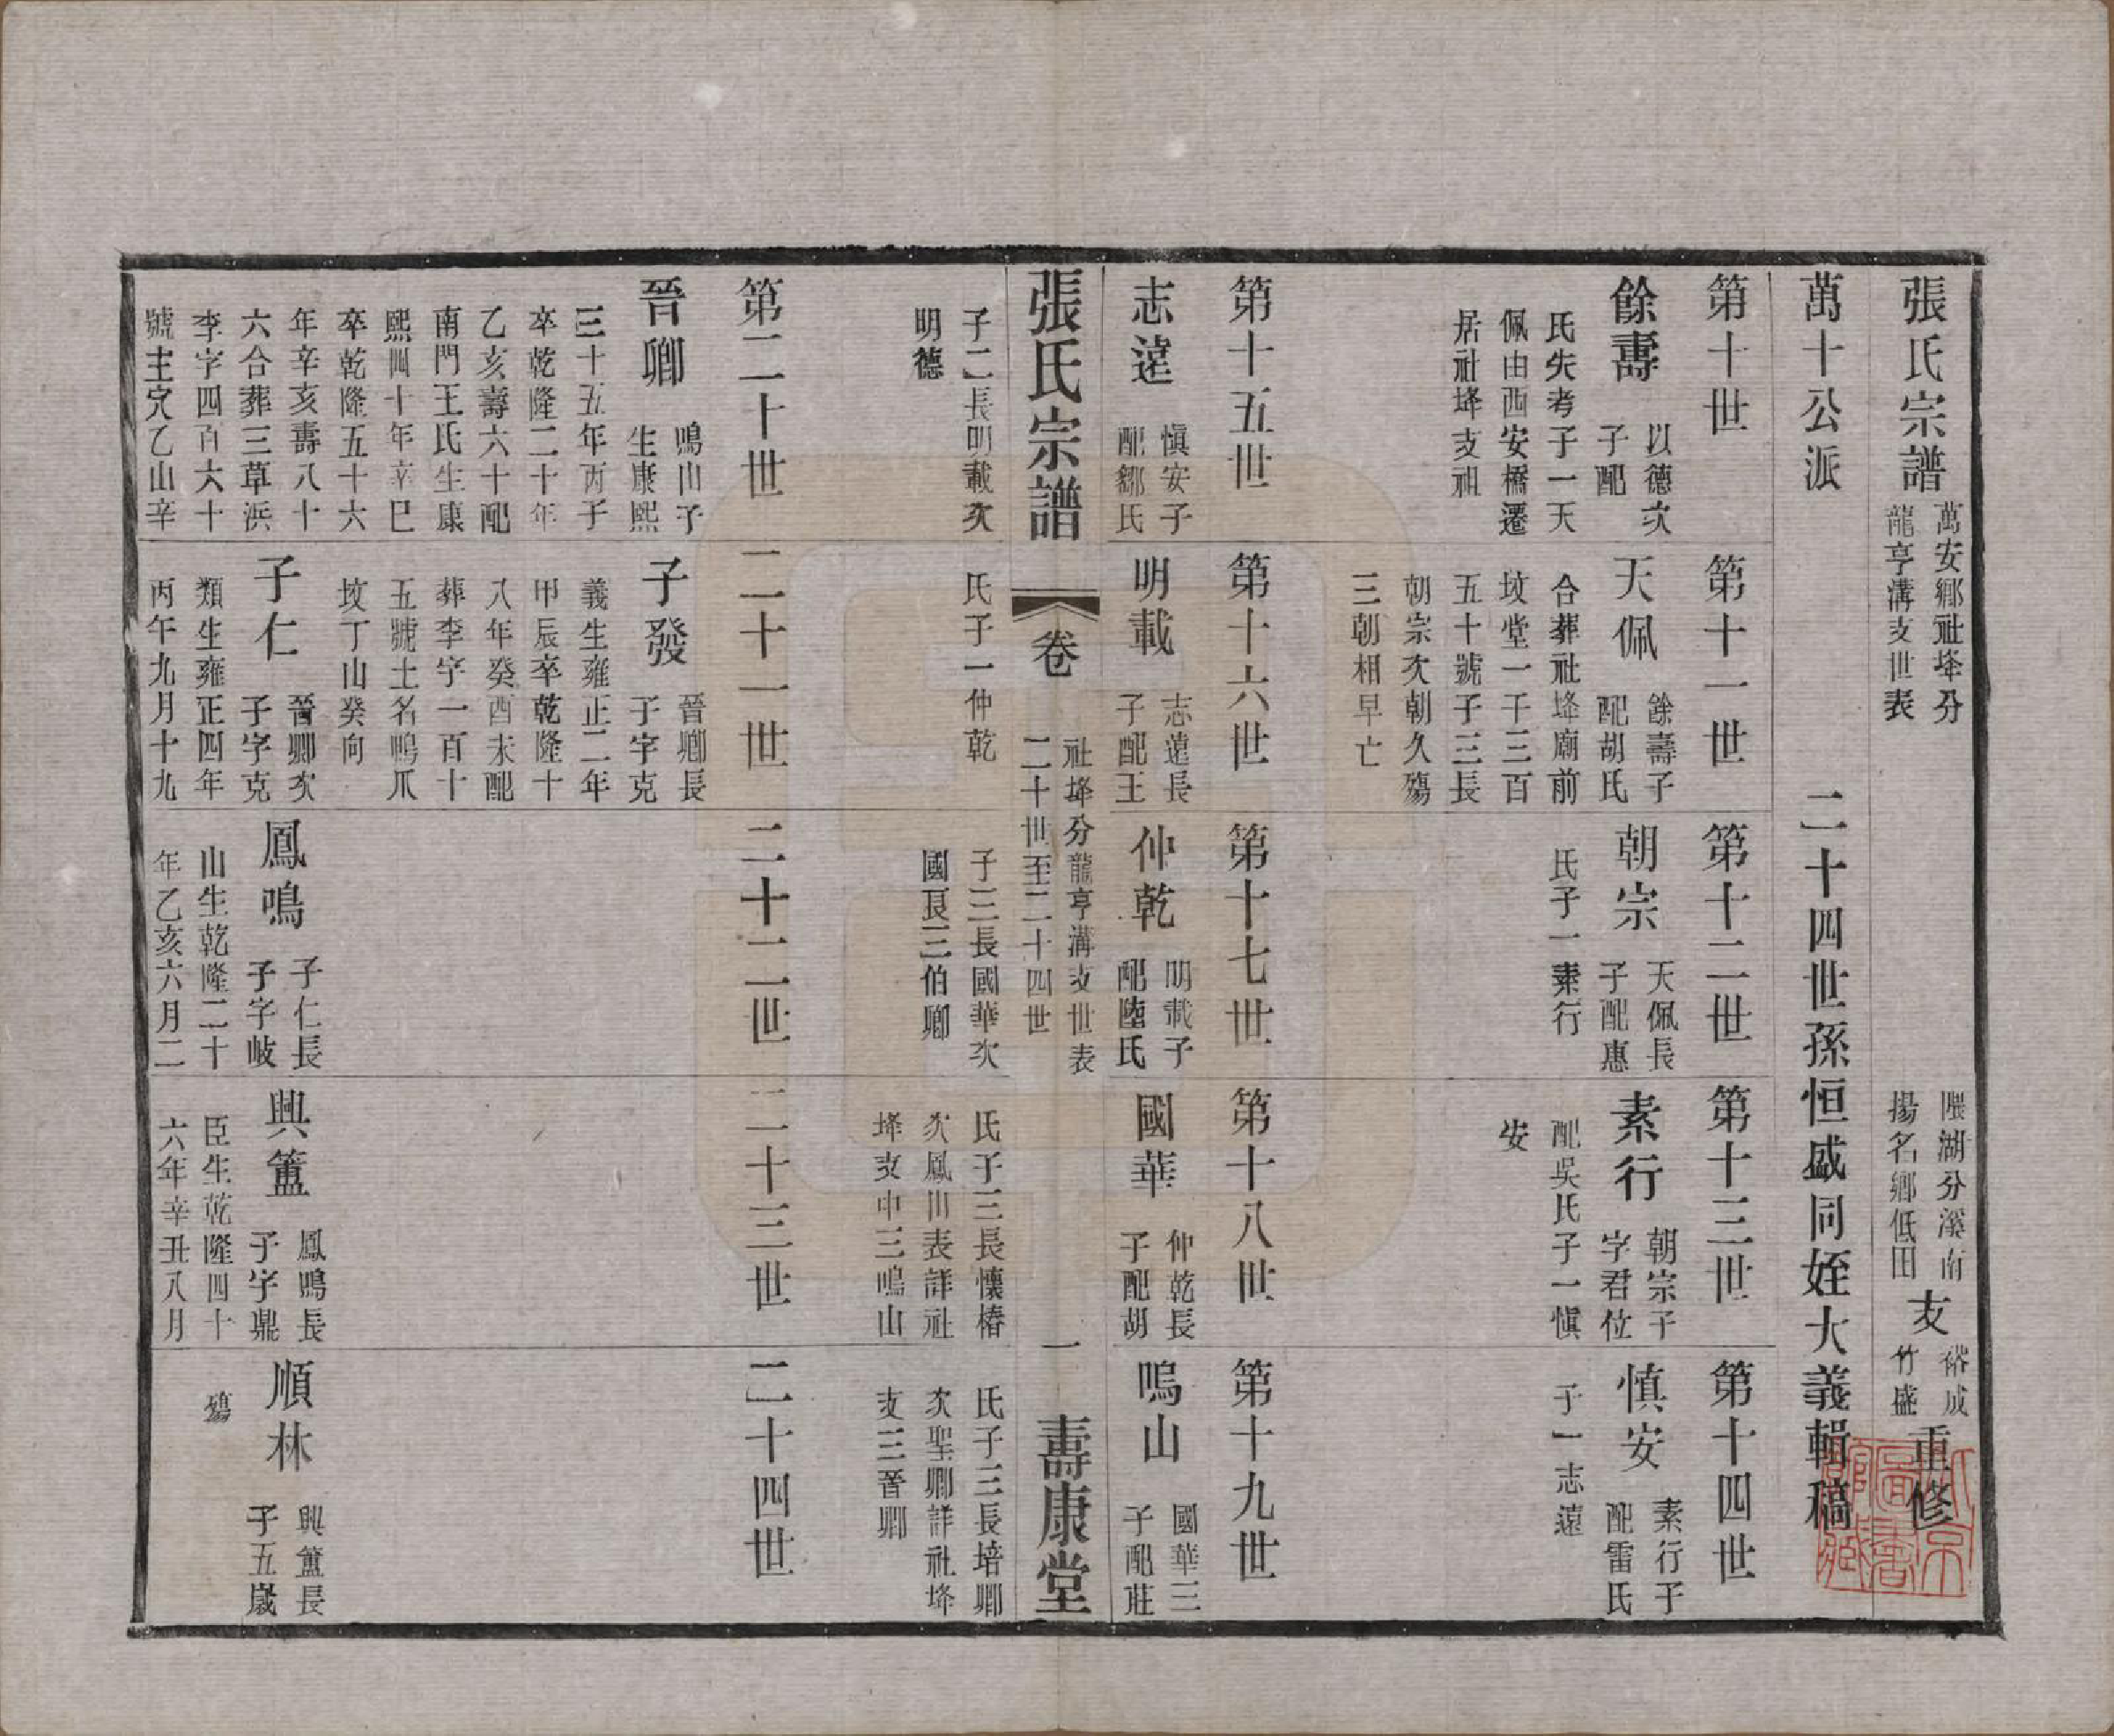 張氏宗譜
萬安鄉祉埄分
龍亭溝支世表
隈湖分溪南
揚名鄉低田
支
裕成
竹盛
重修
萬十公派
二十四世孫恒盛同姪大義輯稿
第十世
第十一世
第十二世
第十三世
第十四世
餘壽
以德次
子配
氏失考子一天
佩由西安橋遷
居祉埄支祖
天佩
餘壽子
配胡氏
合葬祉埄廟前
坟堂一千三百
五十號子三長
朝宗次朝久殤
三朝相早亡
朝宗
天佩長
子配惠
氏子一素行
素行
朝宗子
字君位
配吳氏子一愼
安
慎安
素行子
配雷氏
子一志遠
第十五世
第十六世
第十七世
第十八世
第十九世
志遠
愼安子
配鄒氏
子二長明載次
明德
明載
志遠長
子配王
氏子一仲乾
仲乾
明載子
配陸氏
子三長國華次
國良三伯卿
國華
仲乾長
子配胡
氏子三長懷椿
次鳳川表詳祉
埄支中三鳴山
鳴山
國華三
子配莊
氏子三長培卿
次聖卿詳祉埄
支三晉卿
張氏宗譜
卷
祉埄分龍亭溝支世表
二十世至二十四世
一
壽康堂
第二十世
二十一世
二十二世
二十三世
二十四世
晉卿
鳴山子
生康熙
三十五年丙子
卒乾隆二十年
乙亥壽六十配
南門王氏生康
熙四十年辛巳
卒乾隆五十六
年辛亥壽八十
六合葬三草浜
李字四百六十
號主穴乙山辛
子發
晉卿長
子字克
義生雍正二年
甲辰卒乾隆十
八年癸酉未配
葬李字一百十
五號土名鴨爪
坟丁山癸向
子仁
晉卿次
子字克
類生雍正四年
丙午九月十九
鳳鳴
子仁長
子字岐
山生乾隆二十
年乙亥六月二
興簠
鳳鳴長
子字鼎
臣生乾隆四十
六年辛丑八月
順林
興簠長
子五歲
殤